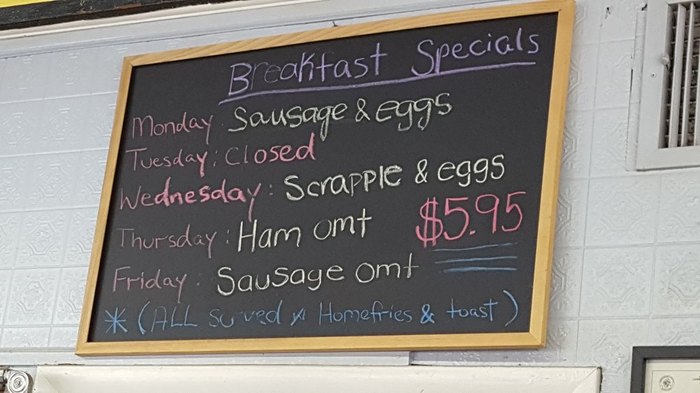 Breakfast Specials
Monday: Sausage & eggs
Tuesday: Closed
Wednesday: Scrapple & eggs
Thursday: Ham omt
$5.95
Friday: Sausage omt
* (ALL Served w Homefries & toast)